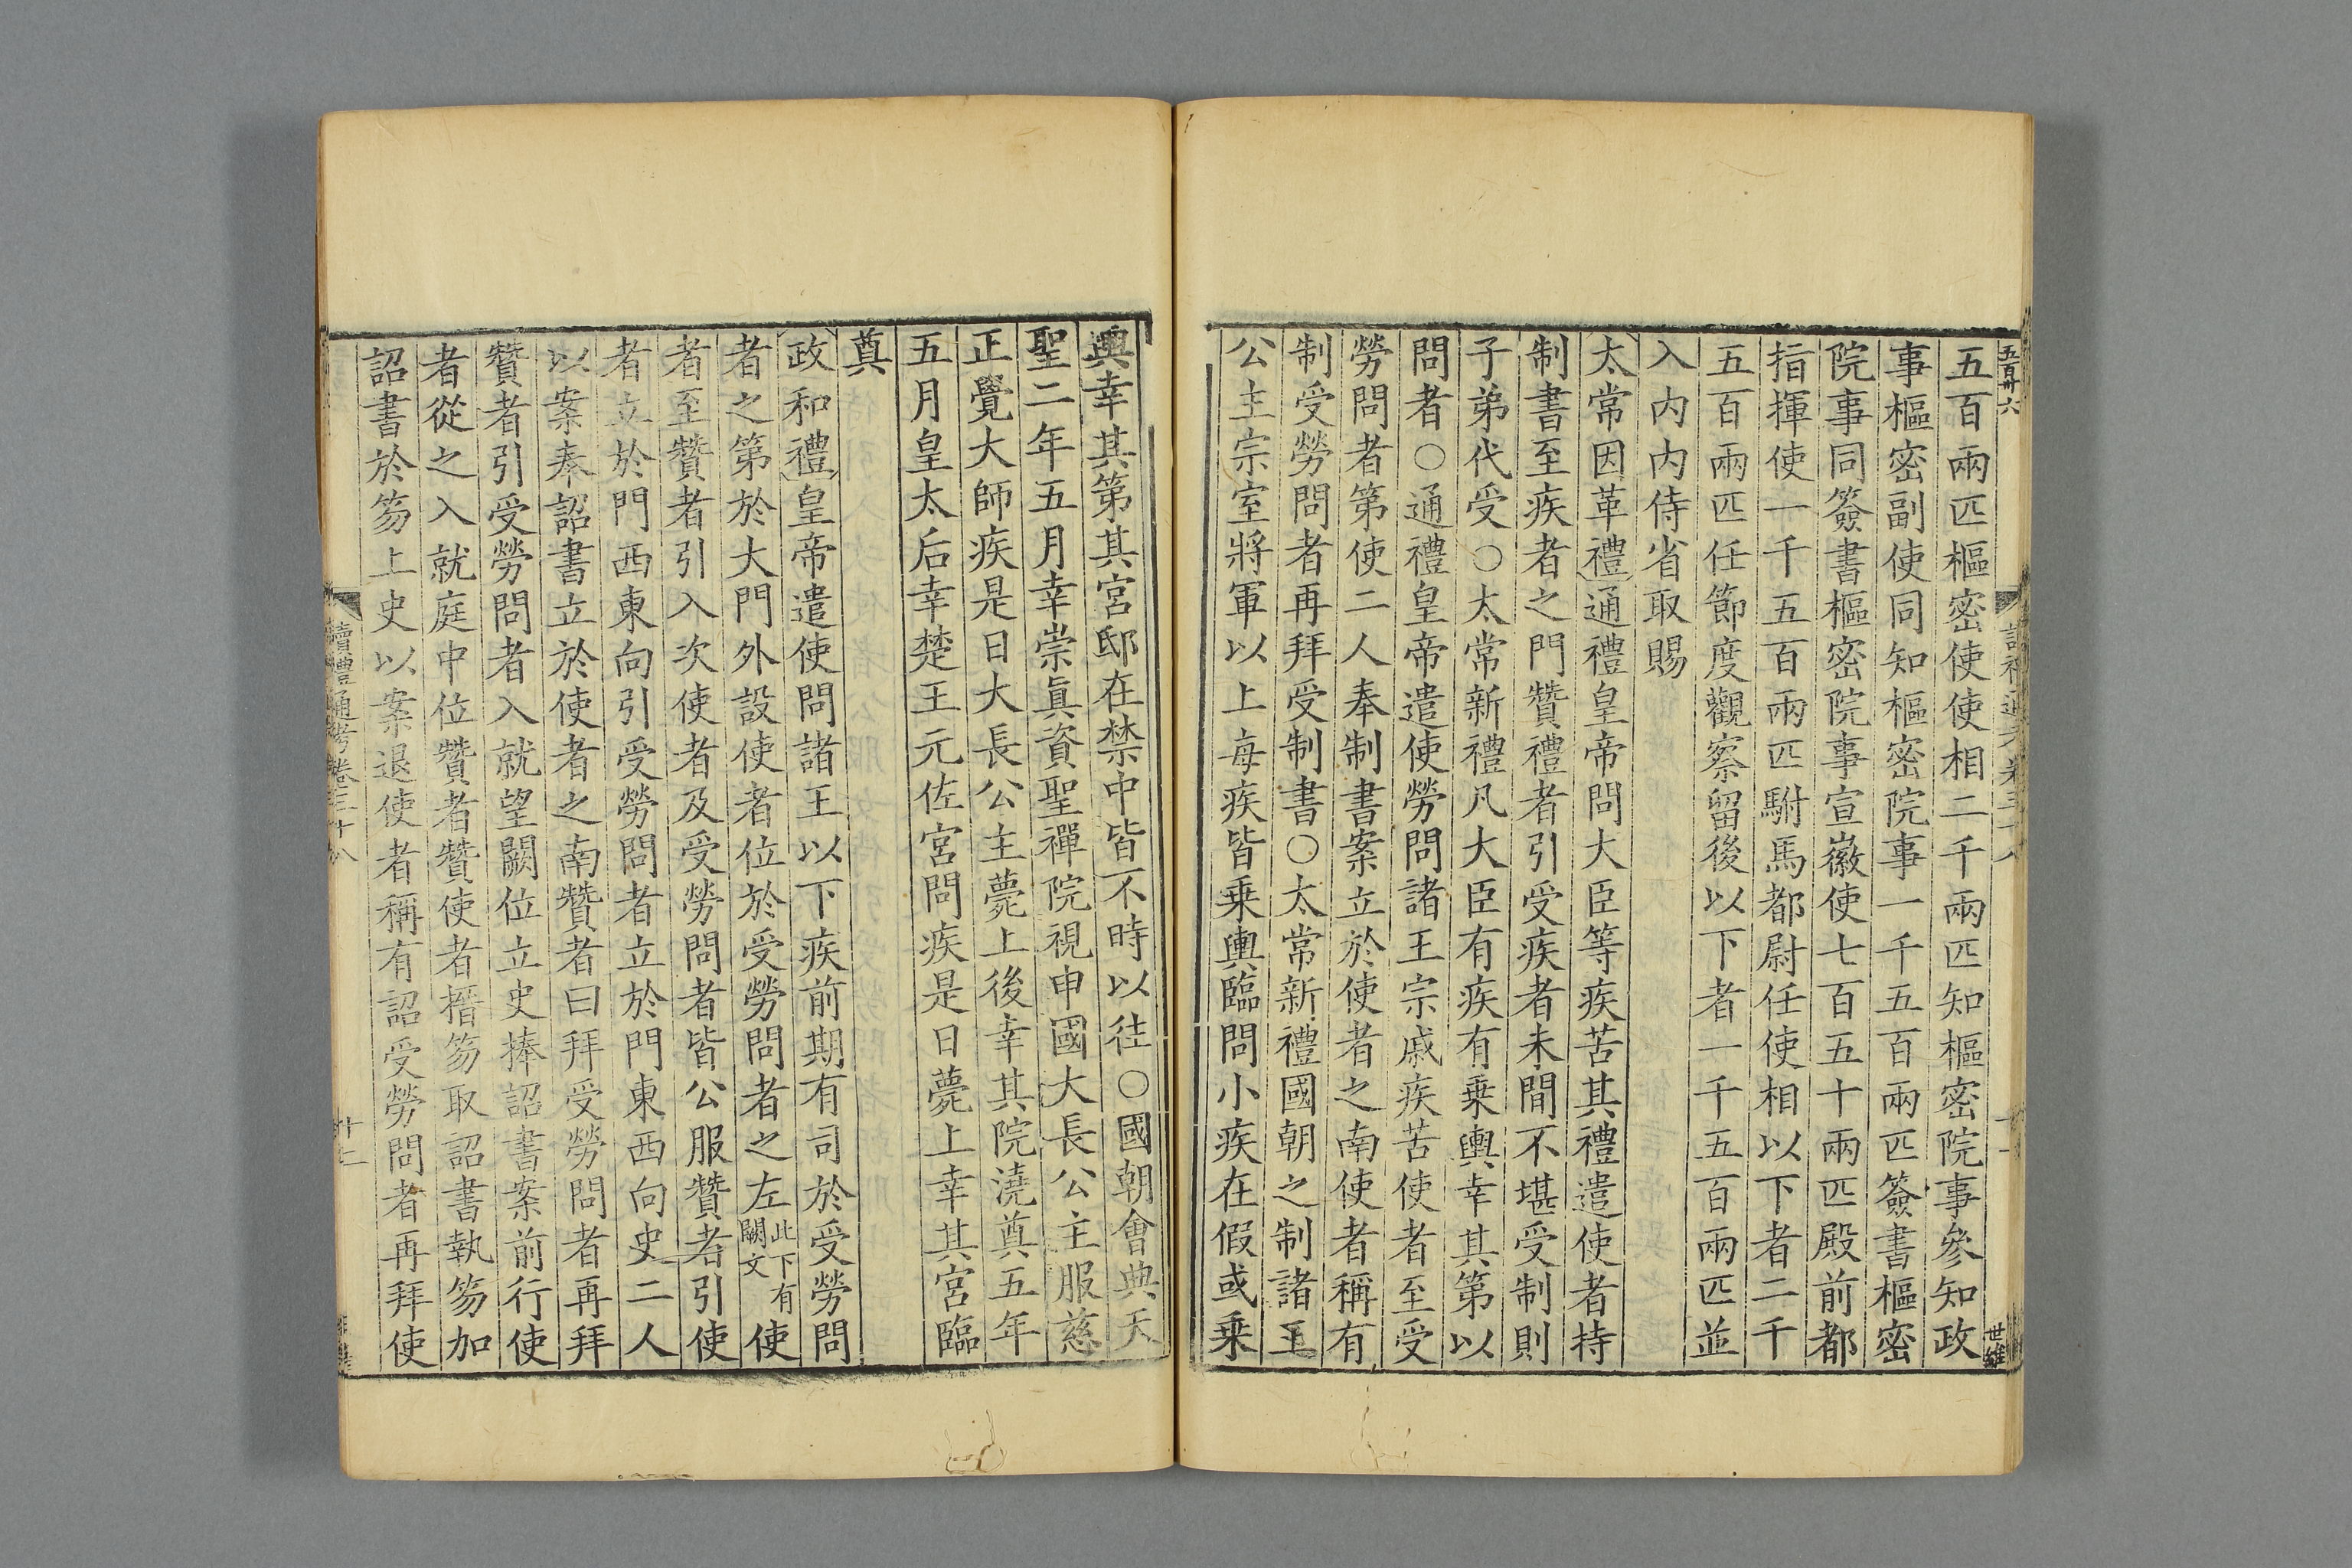 五百卅六
五百兩匹樞密使使相二千兩匹知樞密院事參知政
事樞密副使同知樞密院事一千五百兩匹簽書樞密
院事同簽書樞密院事宣徽使七百五十兩匹殿前都
指揮使一千五百兩匹駙馬都尉任使相以下者二千
五百兩匹任節度觀察留後以下者一千五百兩匹並
入內內侍省取賜
太常因革禮通禮皇帝問大臣等疾苦其禮遣使者持
制書至疾者之門贊禮者引受疾者未間不堪受制則
子弟代受○太常新禮凡大臣有疾有乗輿幸其第以
問者○通禮皇帝遣使勞問諸王宗戚疾苦使者至受
勞問者第使二人奉制書案立於使者之南使者稱有
制受勞問者再拜受制書○太常新禮國朝之制諸王
公主宗室將軍以上每疾皆乗輿臨問小疾在假或乗
輿幸其第其宮邸在禁中皆不時以往○國朝會典天
聖二年五月幸崇眞資聖禪院視申國大長公主服慈
正覺大師疾是日大長公主薨上後幸其院澆奠五年
五月皇太后幸楚王元佐宮問疾是日薨上幸其宮臨
奠
政和禮皇帝遣使問諸王以下疾前期有司於受勞問
者之第於大門外設使者位於受勞問者之左此下有闕文使
者至贊者引入次使者及受勞問者皆公服贊者引使
者立於門西東向引受勞問者立於門東西向史二人
以案奉詔書立於使者之南贊者曰拜受勞問者再拜
贊者引受勞問者入就望闕位立史捧詔書案前行使
者從之入就庭中位贊者贊使者搢笏取詔書執笏加
詔書於笏上史以案退使者稱有詔受勞問者再拜使
讀禮通考卷三十八
十二